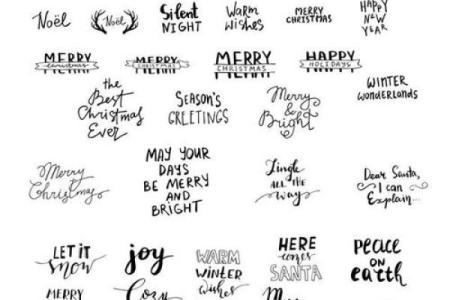 Noël
Noël
Silent
NIGHT
Warm
Wishes
MERRY
CHRISTMAS
HAPPY
NEW
YEAR
MERRY
CHRISTMAS
MERRY
CHRISTMAS
MERRY
CHRISTMAS
HAPPY
HOLIDAYS
the
Best
Christmas
Ever
SEASON'S
GREETINGS
Merry
&
Bright
WINTER
wonderlands
Merry
Christmas
MAY YOUR
DAYS
BE MERRY
AND
BRIGHT
Jingle
ALL THE
way
Dear Santa,
I can
Explain...
LET IT
snow
joy
WARM
WINTER
wishes
HERE
comes
SANTA
PEACE
ON
earth
MERRY